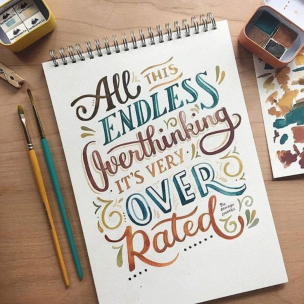 All THIS
ENDLESS
Overthinking
IT'S VERY
OVER
Rated